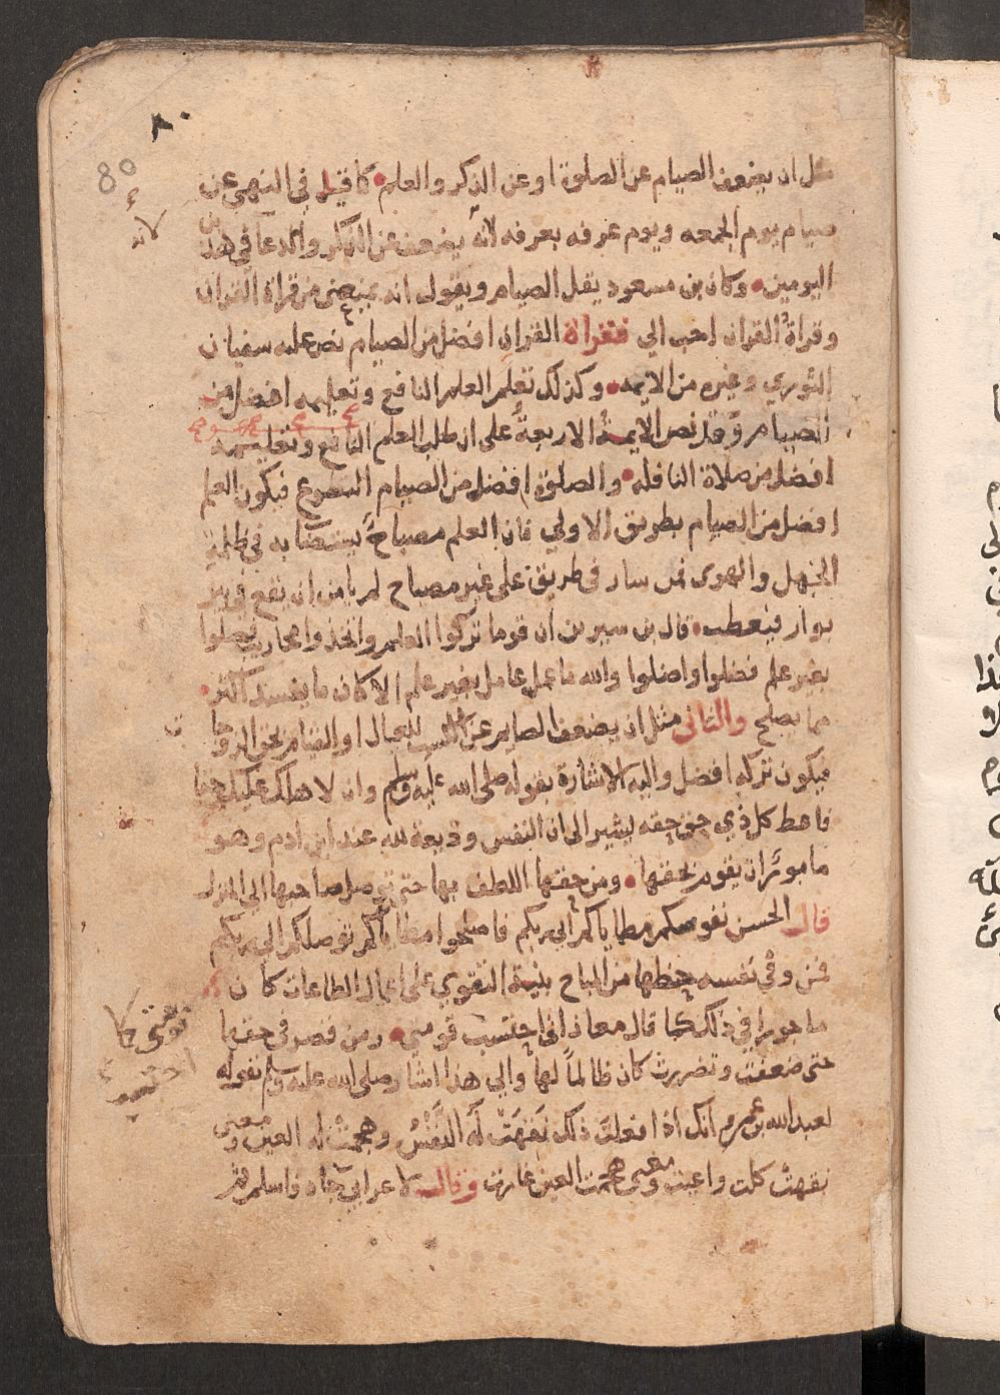 ٨٠
80
مثل ان يضعف الصيام عن الصلوة او عن الذكر والعلم كما قيل في النهي عن
صيام يوم الجمعه ويوم عرفه بعرفه لانه يضعف عن الذكر والدعا في هذين
اليومين وكان بن مسعود يقل الصيام ويقول انه يمنعني من قراة القران
وقراة القران احب الي فقراة القران افضل من الصيام نص عليه سفيان
الثوري وغيره من الايمه وكذلك تعلم العلم النافع وتعليمه افضل من
الصيام وقد نص الايمة الاربعة على ان طلب العلم النافع وتعليمه
افضل من صلاة النافله والصلوة افضل من الصيام التطوع فيكون العلم
افضل من الصيام بطريق الاولي فان العلم مصباح يستضا به في ظلمة
الجهل والهوى فمن سار في طريق على غير مصباح لم يامن ان يقع في بير
بوار فيعطب قال بن سيرين ان قوما تركوا العلم واتخذوا محاريب فصلوا
بغير علم فضلوا واضلوا والله ما عمل عامل بغير علم الا كان ما يفسد اكثر
مما يصلح والثاني مثل ان يضعف الصايم عن الكسب للعيال او القيام بحق الزوجا
فيكون تركه افضل واليه الاشارة بقوله صلى الله عليه وسلم وان لاهلك عليك حقا
فاعط كل ذي حق حقه يشير الى ان النفس وديعة لله عند ابن ادم وهو
مامور ان يقوم بحقها ومن حقها اللطف بها حتى توصل صاحبها الي المنزل
قال الحسن نفوسكم مطاياكم الي ربكم فاصلحوا مطاياكم توصلكم الي ربكم
فمن وفى نفسه حظها من المباح بنية التقوي على اعمال الطاعات كان
ماجورا في ذلك كما قال معاذ اني احتسب قومتي ومن قصر في حقها
حتى ضعفت وتضررت كان ظالماً لها والي هذا اشار صلى الله عليه وسلم بقوله
لعبد الله بن عمرو انك اذا فعلت ذلك نفهت له النفس وهجمت له العين ومعنى
نفهت كلت واعيت ومعنى هجمت العين غارت وقال لاعرابي جاه فاسلم ثم
لانه
نومتي كما
احتسب